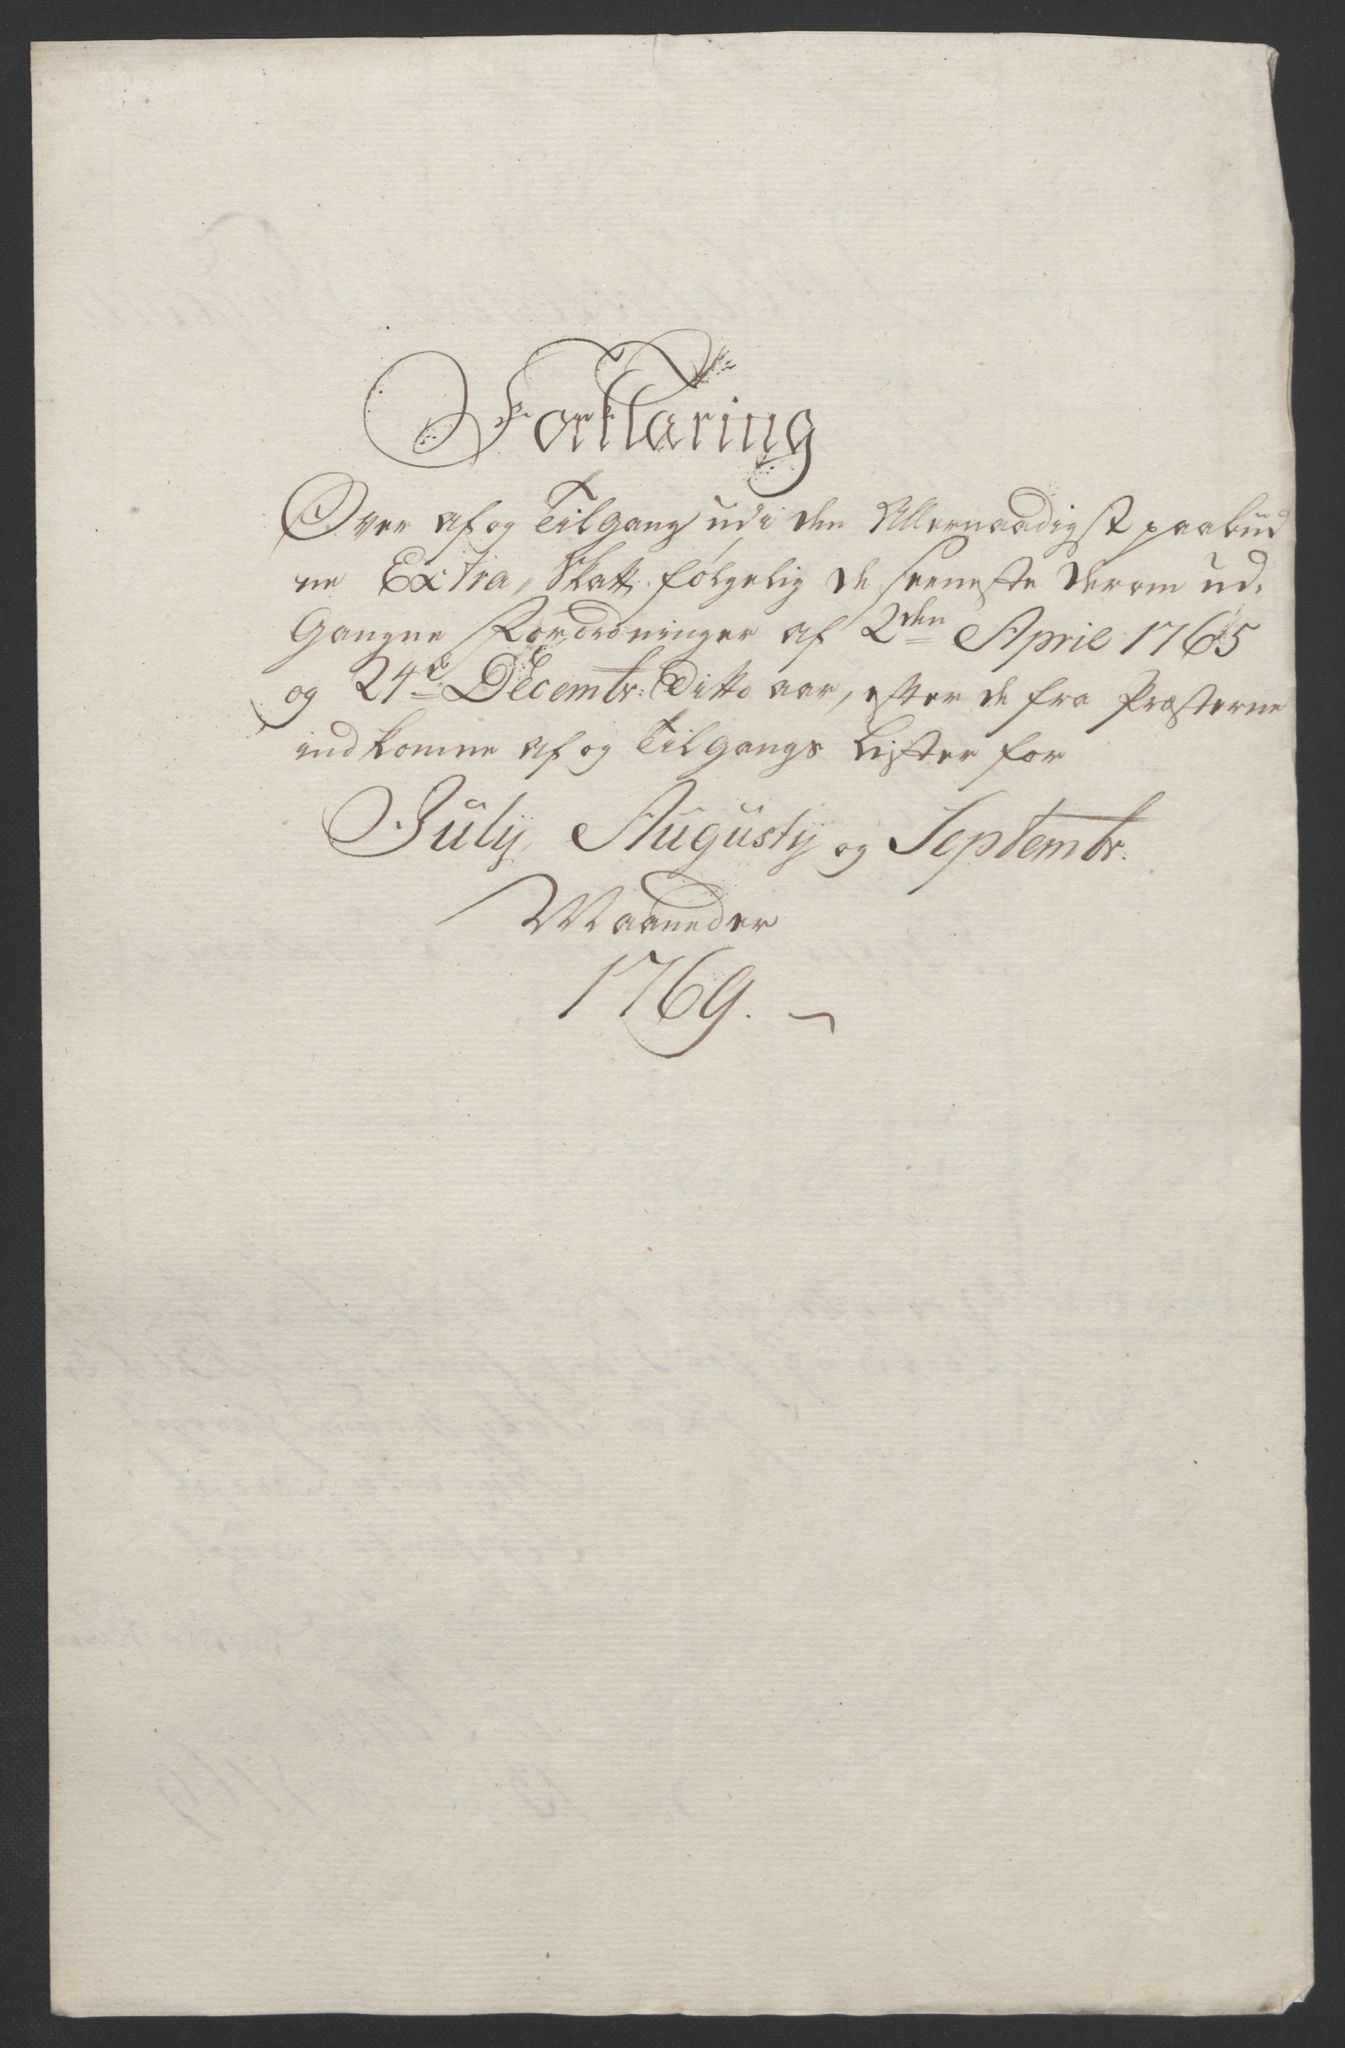 Forklaring
Over af og Tilgang udi den Allernaadigst paabud
ne Extra, Skatt. følgelig de seeneste derom ud-
Gangne Forordninger af 2den April 1765
og 24de Decembr: Ditto aar, efter de fra Præsterne
indkomne af og Tilgangs Lister for
July, Augusty og Septembr.
Maaneder
1769.